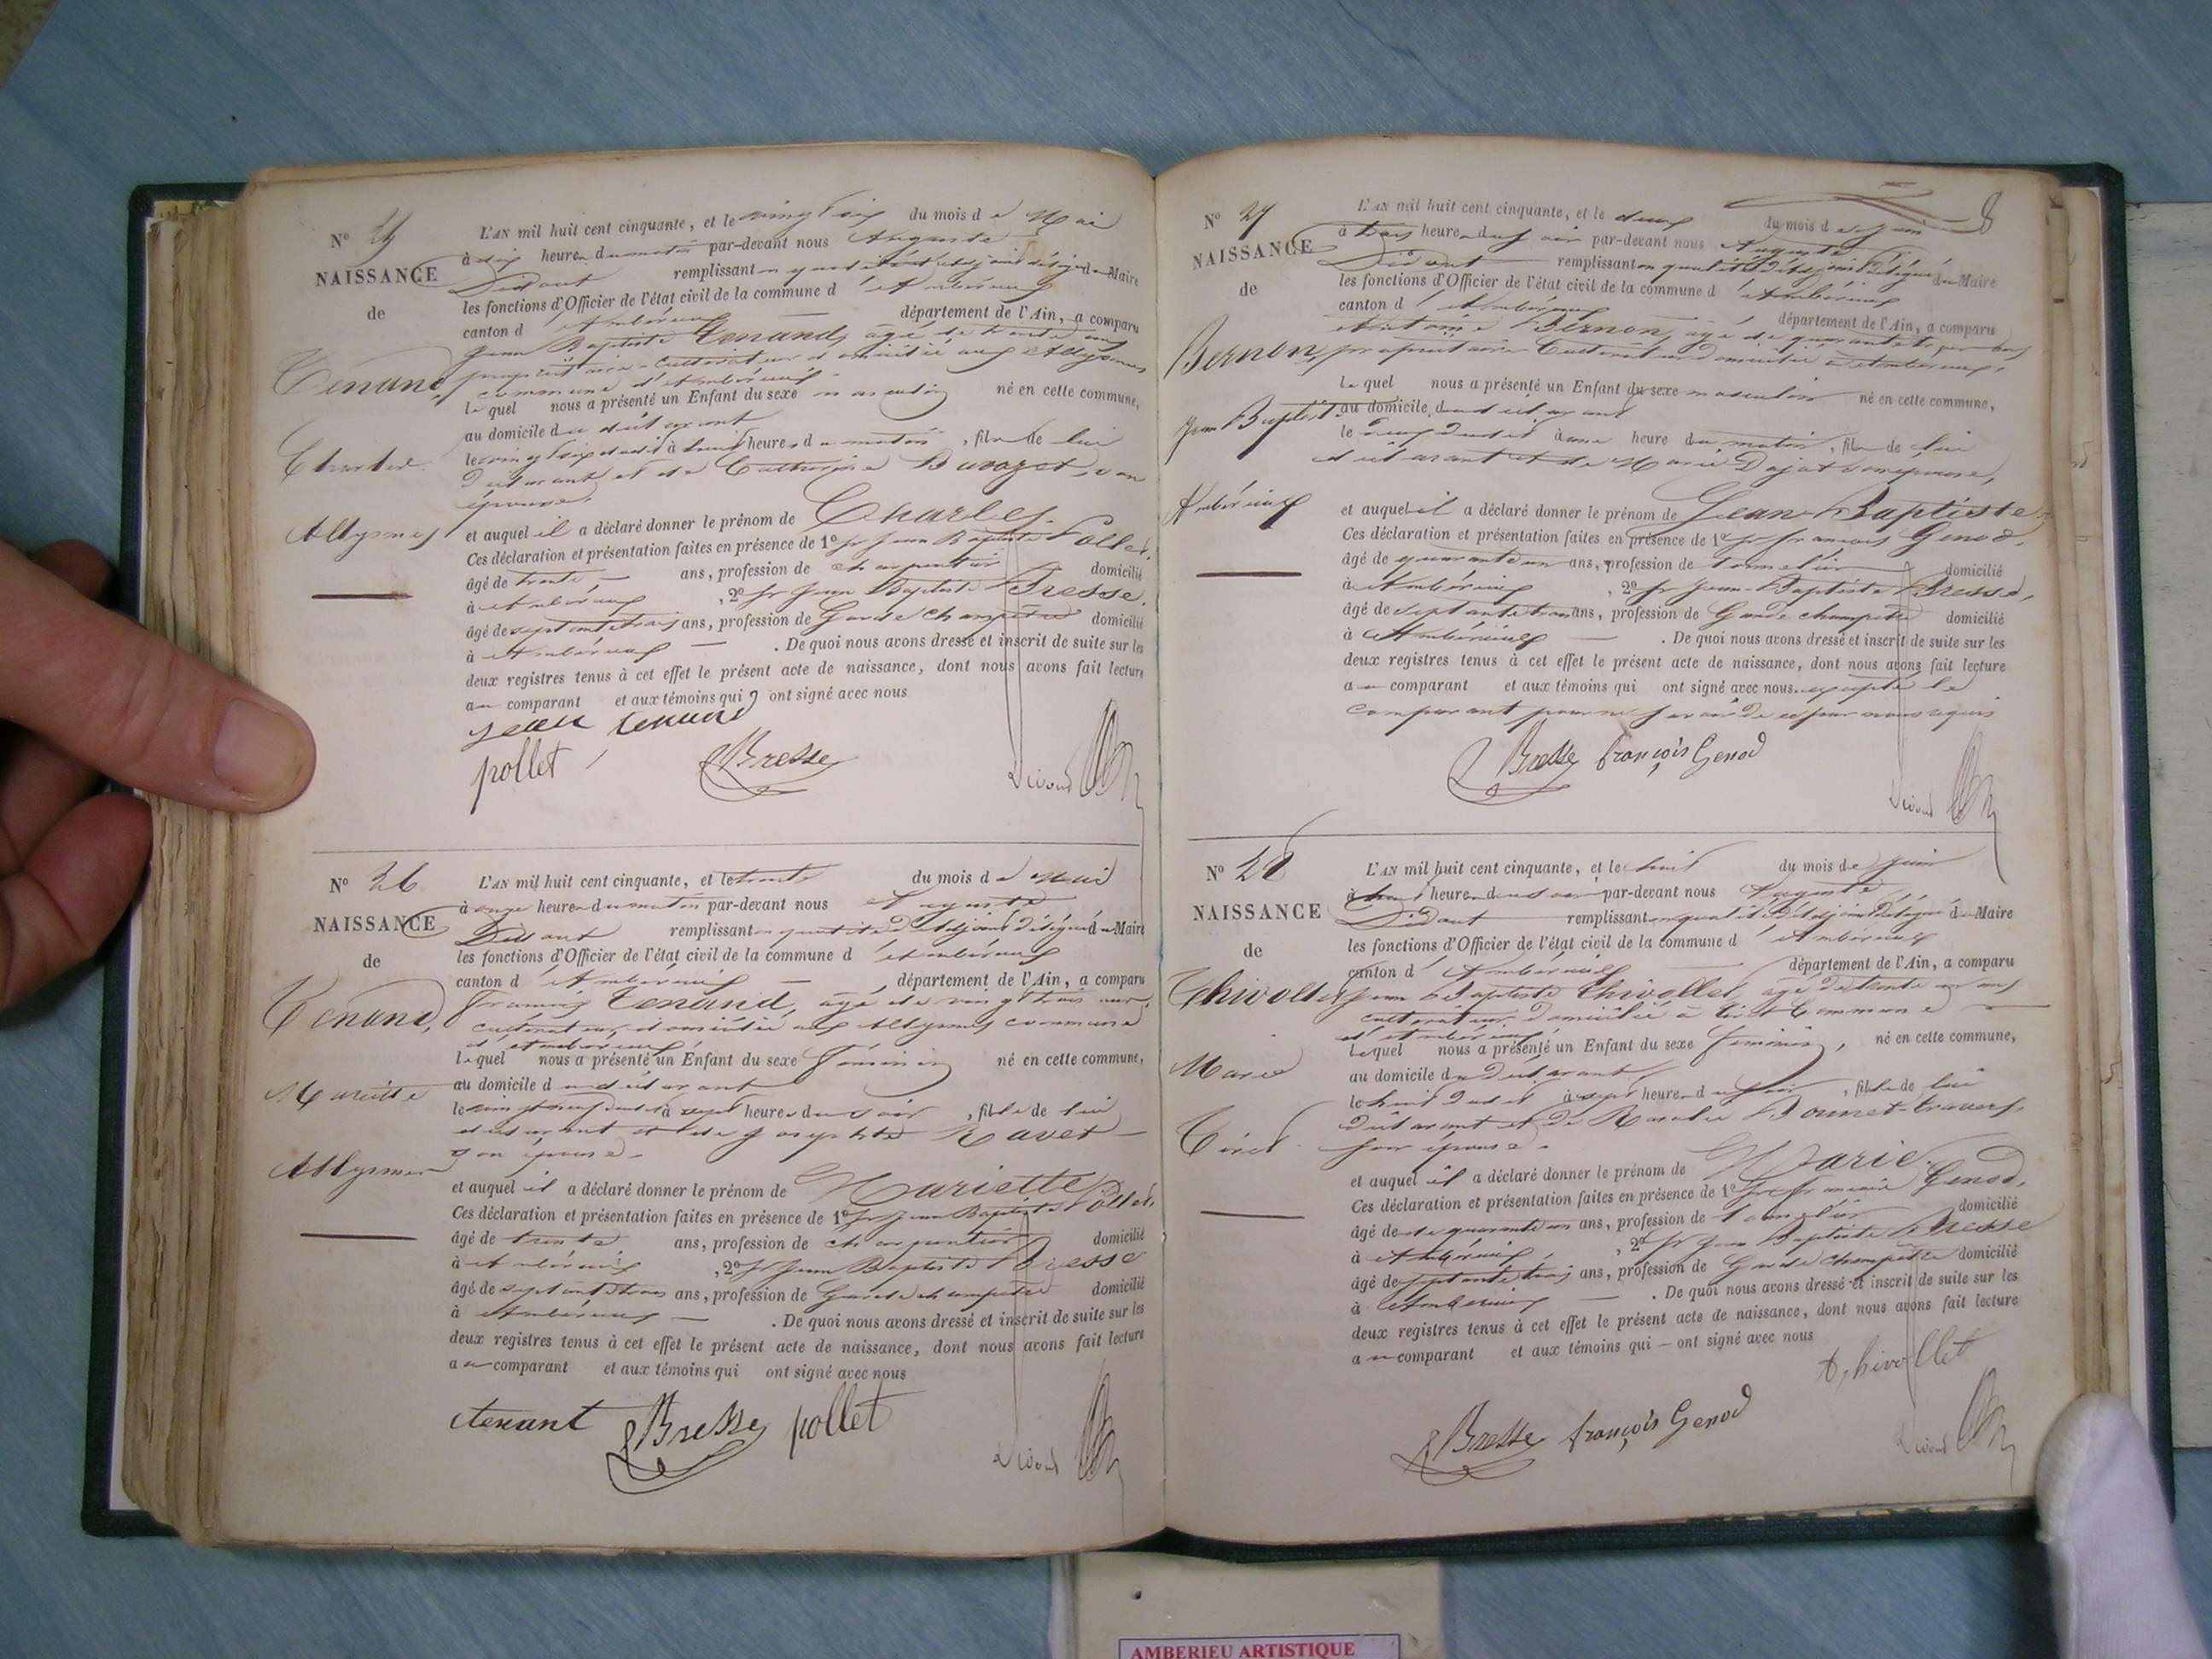 N° 25
NAISSANCE
de
Tenand
Charles
Allymes
L'AN mil huit cent cinquante, et le vingt six du mois de Mai
à dix heures du matin par-devant nous Auguste
Didout remplissant en qualité d'adjoint délégué du Maire
les fonctions d'Officier de l'état civil de la commune d'Ambérieux
canton d'Ambérieux département de l'Ain, a comparu
Jean Baptiste Tenand, âgé de trente ans
propriétaire-cultivateur domicilié aux Allymes
commune d'Ambérieux
Lequel nous a présenté un Enfant du sexe masculin né en cette commune,
au domicile du déclarant
le vingt six dudit à heures du matin, fils de lui
déclarant et de Catherine son
épouse,
et auquel il a déclaré donner le prénom de Charles.
Ces déclaration et présentation faites en présence de 1° Sr Jean Baptiste Pollet,
âgé de trente ans, profession de charpentier domicilié
à Ambérieux, 2° Sr Jean Baptiste Bresse,
âgé de septante trois ans, profession de Garde champêtre domicilié
à Ambérieux. De quoi nous avons dressé et inscrit de suite sur les
deux registres tenus à cet effet le présent acte de naissance, dont nous avons fait lecture
au comparant et aux témoins qui ont signé avec nous
jean tenand
pollet Bresse
N° 26
NAISSANCE
de
Tenand,
Mariette
Allymes
L'AN mil huit cent cinquante, et le trente du mois de Mai
à onze heures du matin par-devant nous Auguste
Didout remplissant en qualité d'adjoint délégué du Maire
les fonctions d'Officier de l'état civil de la commune d'Ambérieux
canton d'Ambérieux, département de l'Ain, a comparu
François Tenand, âgé de vingt trois ans,
cultivateur, domicilié aux Allymes commune
d'Ambérieux
lequel nous a présenté un Enfant du sexe féminin né en cette commune,
au domicile dudit déclarant
le vingt neuf dudit à sept heures du soir, fille de lui
déclarant et de Josephte Ravet
son épouse.
et auquel il a déclaré donner le prénom de Mariette
Ces déclaration et présentation faites en présence de 1° Sr Jean Baptiste Pollet,
âgé de trente ans, profession de charpentier domicilié
à Ambérieux, 2° Sr Jean Baptiste Bresse
âgé de septante trois ans, profession de Garde champêtre domicilié
à Ambérieux. De quoi nous avons dressé et inscrit de suite sur les
deux registres tenus à cet effet le présent acte de naissance, dont nous avons fait lecture
au comparant et aux témoins qui ont signé avec nous
tenant Bresse pollet
8
N° 27
NAISSANCE
de
Bernon,
Jean Baptiste
Ambérieux
L'AN mil huit cent cinquante, et le deux du mois de Juin
à trois heures du soir par-devant nous Auguste
Didout remplissant en qualité d'adjoint délégué du Maire
les fonctions d'Officier de l'état civil de la commune d'Ambérieux
canton d'Ambérieux département de l'Ain, a comparu
Antoine Bernon, âgé de quarante ans
propriétaire Cultivateur domicilié à Ambérieux,
Lequel nous a présenté un Enfant du sexe masculin né en cette commune,
au domicile dudit déclarant
le deux dudit à une heure du matin, fils de lui
déclarant et de Marie Dajat son épouse,
et auquel il a déclaré donner le prénom de Jean-Baptiste
Ces déclaration et présentation faites en présence de 1° Sr françois Genod,
âgé de quarante un ans, profession de tonnelier domicilié
à Ambérieux, 2° Sr Jean-Baptiste Bresse,
âgé de septante trois ans, profession de Garde champêtre domicilié
à Ambérieux. De quoi nous avons dressé et inscrit de suite sur les
deux registres tenus à cet effet le présent acte de naissance, dont nous avons fait lecture
au comparant et aux témoins qui ont signé avec nous excepté le
comparant pour ne savoir de ce par nous requis
Bresse françois Genod
N° 28
NAISSANCE
de
Thivollet
Marie
Tiret
L'AN mil huit cent cinquante, et le huit du mois de Juin
à huit heures du soir par-devant nous Auguste
Didout remplissant en qualité d'adjoint délégué du Maire
les fonctions d'Officier de l'état civil de la commune d'Ambérieux
canton d'Ambérieux département de l'Ain, a comparu
Jean Baptiste Thivollet, âgé de trente un ans
cultivateur domicilié à Tiret Commune
d'Ambérieux,
Lequel nous a présenté un Enfant du sexe féminin, né en cette commune,
au domicile du déclarant
le huit dudit à sept heures du soir, fille de lui
déclarant et de Rosalie Bonnet-travers,
son épouse.
et auquel il a déclaré donner le prénom de Marie.
Ces déclaration et présentation faites en présence de 1° Sr françois Genod,
âgé de quarante un ans, profession de tonnelier domicilié
à Ambérieux, 2° Sr Jean Baptiste Bresse
âgé de septante trois ans, profession de Garde champêtre domicilié
à Ambérieux. De quoi nous avons dressé et inscrit de suite sur les
deux registres tenus à cet effet le présent acte de naissance, dont nous avons fait lecture
au comparant et aux témoins qui ont signé avec nous
Thivollet
Bresse françois Genod
AMBERIEU ARTISTIQUE